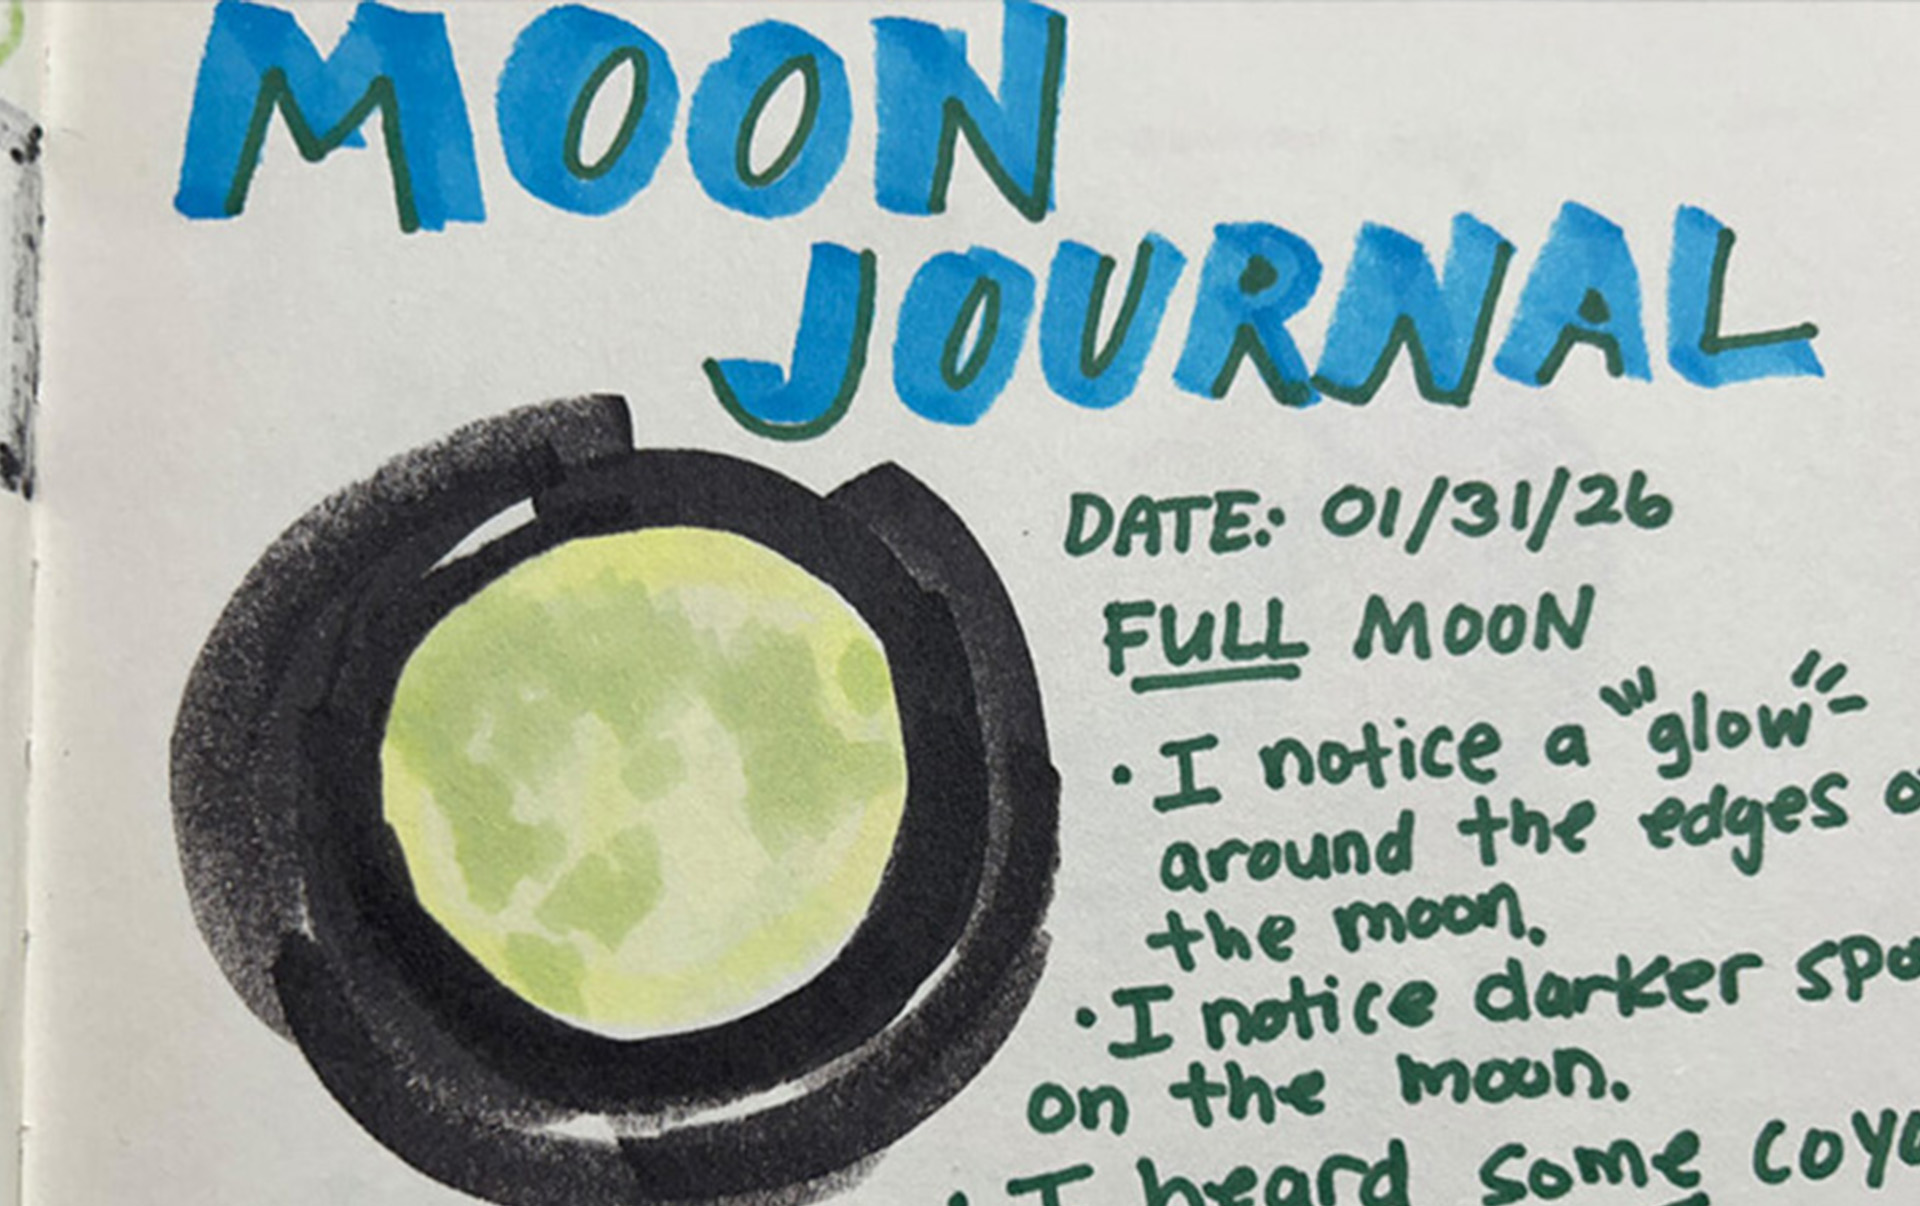 MOON
JOURNAL
DATE: 01/31/26
FULL MOON
• I notice a "glow"
around the edges
the moon.
• I notice darker
on the moon.
I heard some